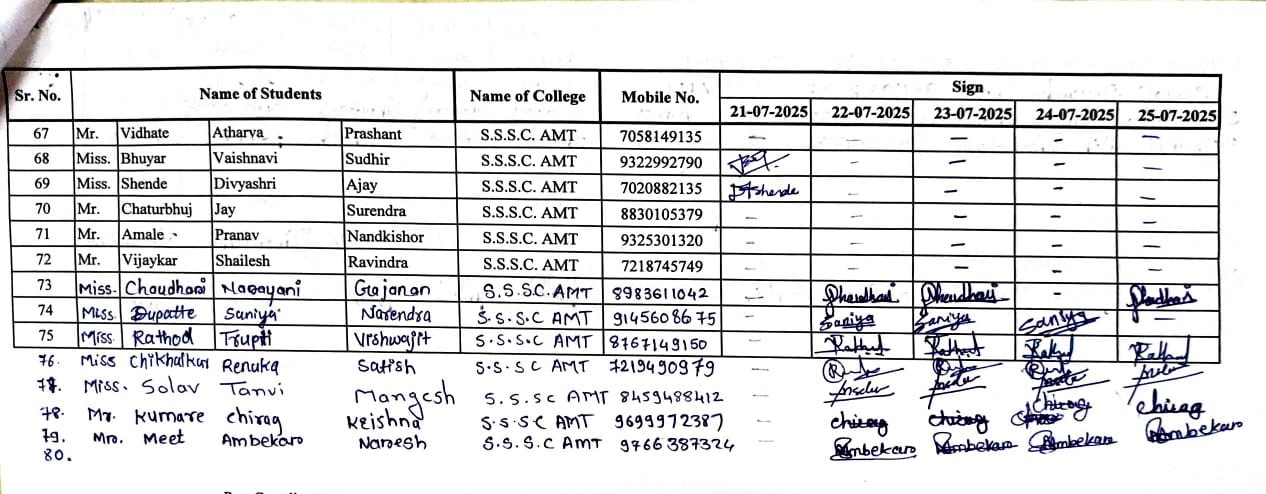 Sr. No. Name of Students Name of College Mobile No. Sign
21-07-2025 22-07-2025 23-07-2025 24-07-2025 25-07-2025
67 Mr. Vidhate Atharva Prashant S.S.S.C. AMT 7058149135 — — — —
68 Miss. Bhuyar Vaishnavi Sudhir S.S.S.C. AMT 9322992790 — — — —
69 Miss. Shende Divyashri Ajay S.S.S.C. AMT 7020882135 DAshende — — — —
70 Mr. Chaturbhuj Jay Surendra S.S.S.C. AMT 8830105379 — — — — —
71 Mr. Amale Pranav Nandkishor S.S.S.C. AMT 9325301320 — — — — —
72 Mr. Vijaykar Shailesh Ravindra S.S.S.C. AMT 7218745749 — — — — —
73 Miss. Choudhari Narayani Gajanan S.S.SC.AMT 8983611042 — —
74 Miss. Dupatte Saniya Narendra S.S.S.C AMT 9145608675 — Saniya Saniya Saniya —
75 Miss. Rathod Trupti Vrshwajit S.S.S.C AMT 8767149150 — Rathod Rathod Rathod Rathod
76. Miss Chikhalkar Renuka Satish S.S.SC AMT 7219490979 —
77. Miss. Solav Tanvi Mangesh S.S.SC AMT 8459488412 —
78. Mr. Kumare chirag Keishna S.S.SC AMT 9699972387 — chirag Chirag Chirag Chirag
79. Mr. Meet Ambekaro Naroesh S.S.S.C AMT 9766387324 — Ambekaro Ambekaro Ambekaro Ambekaro
80.